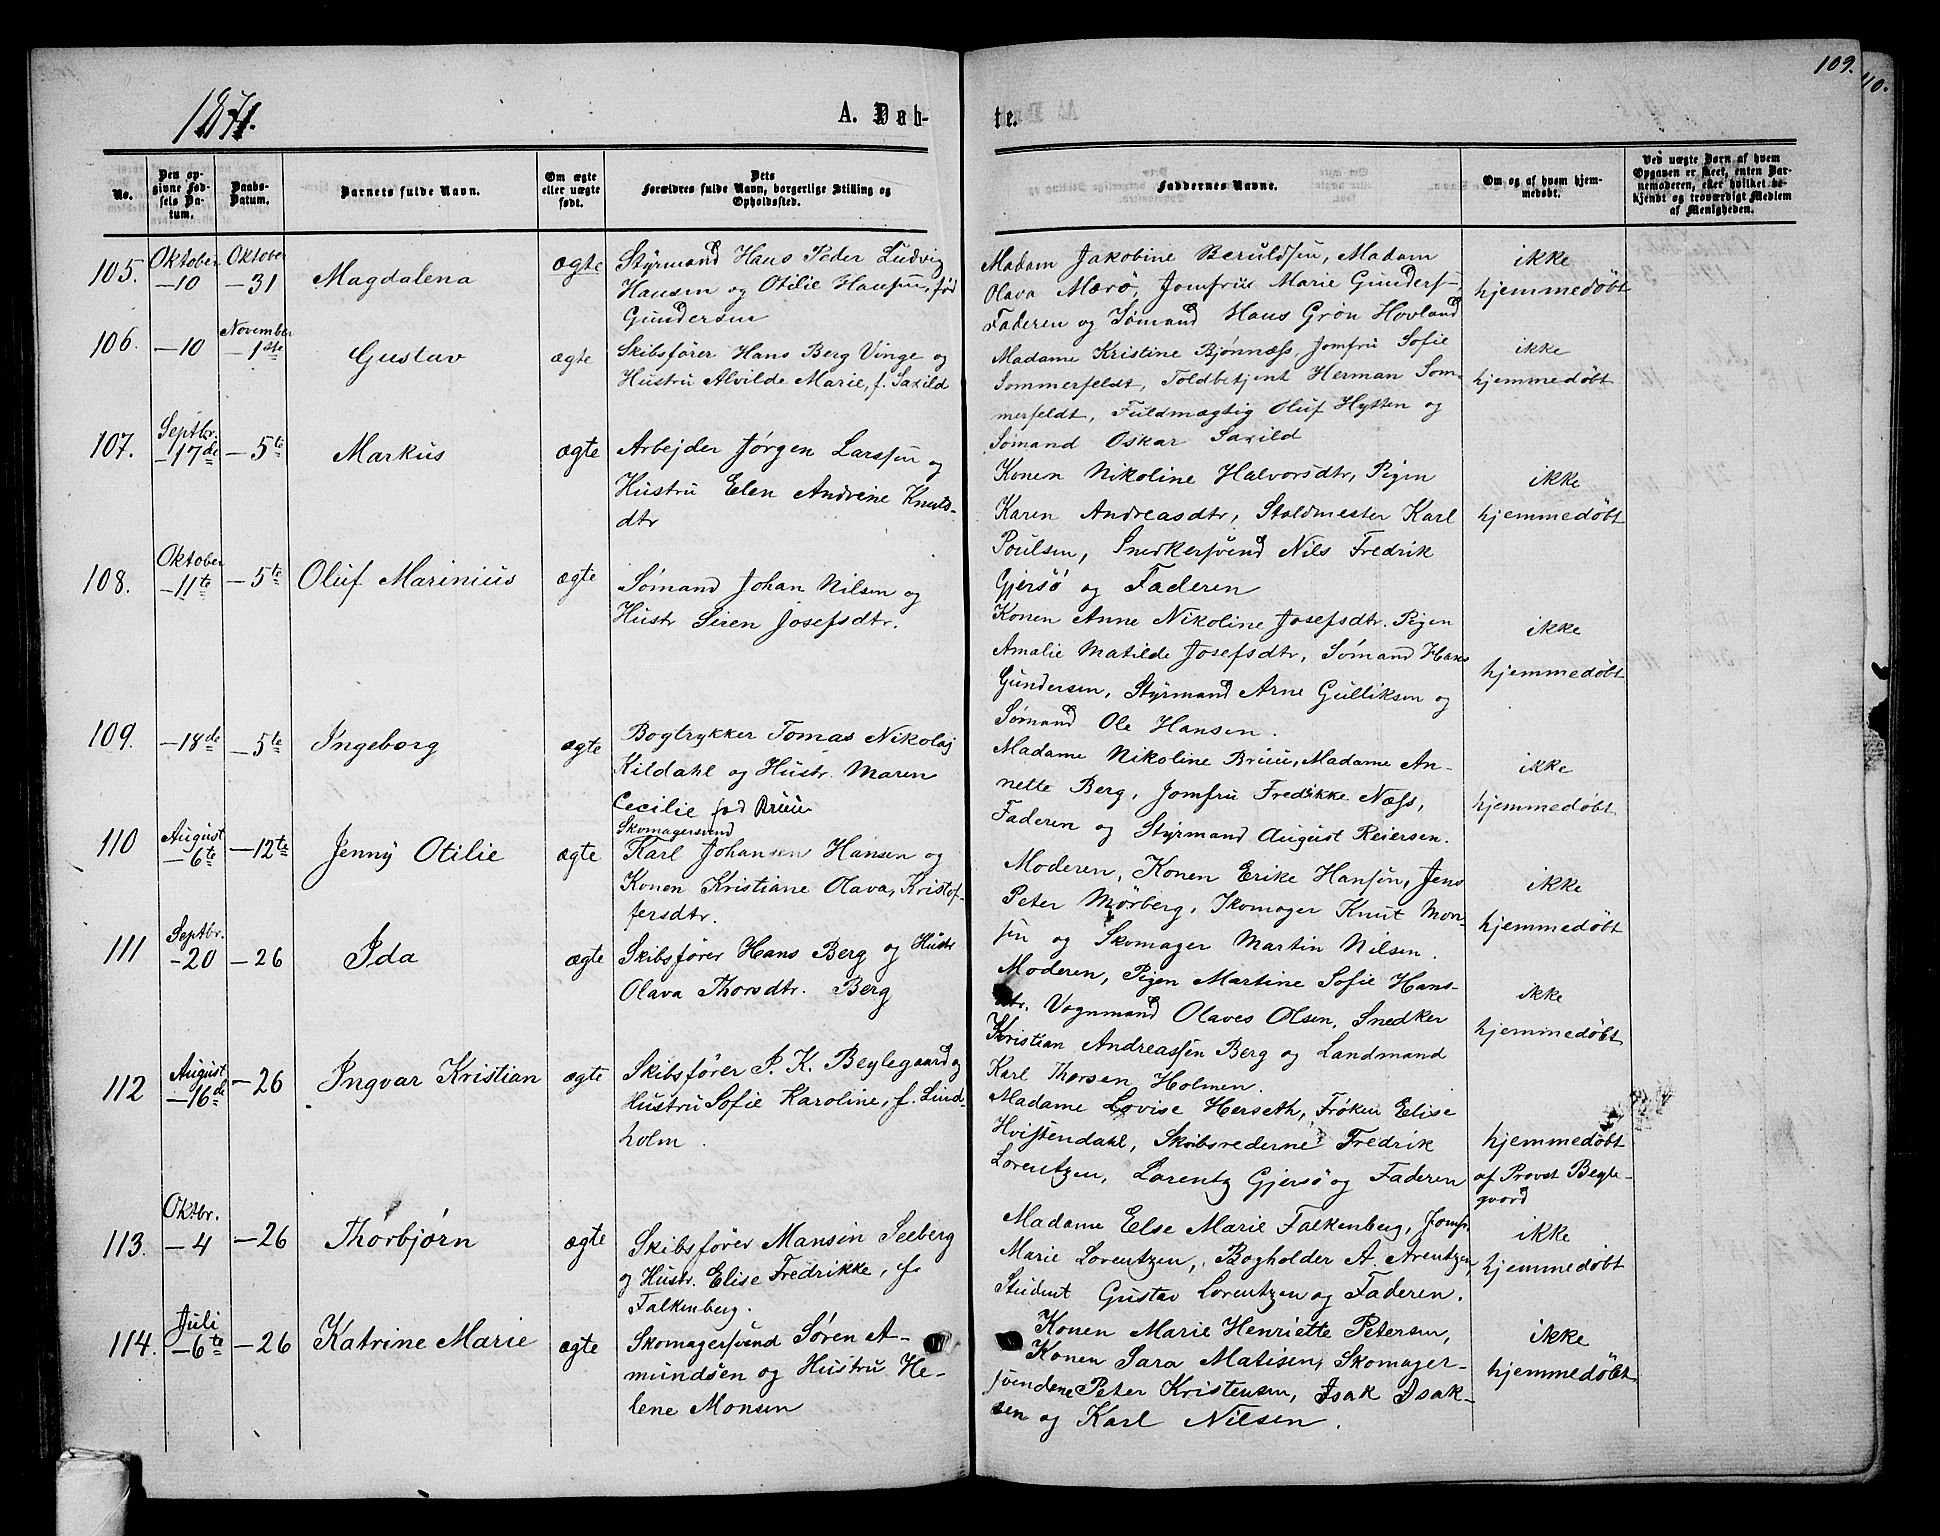 109.
1871.
A. Døb-
te.
No.
Den op-
givne Fød-
sels Da-
tum.
Daabs-
Datum.
Barnets fulde Navn.
Om ægte
eller uægte
født.
Dets
Forældres fulde Navn, borgerlige Stilling og
Opholdssted.
Faddernes Navne.
Om og af hvem hjem-
medøbt.
Ved uægte Børn af hvem
Opgaven er skeet, enten Bar-
nemoderen, eller hvilket be-
kjendt og troværdigt Medlem
af Menigheden.
105.
Oktober
—10
Oktober
—31
Magdalena
ægte
Styrmand Hans Peder Ludvig
Hansen og Otilie Hansen, fød
Gundersen
Madam Jakobine Beruldsen, Madam
Olava Mærø, Jomfru Marie Gunders-
Faderen og Sømand Hans Grøn Hovland
ikke
hjemmedøbt
106.
—10
November
—1ste
Gustav
ægte
Skibsfører Hans Berg Vinge og
Hustru Alvilde Marie, f. Saxild
Madame Kristine Bjønness, Jomfru Sofie
Sommerfeldt, Toldbetjent Herman Som-
merfeldt, Fuldmægtig Oluf Hytten og
Sømand Oskar Saxild
ikke
hjemmedøbt
107.
Septbr.
—17de
—5te
Markus
ægte
Arbejder Jørgen Larssen og
Hustru Elen Andrine Knuds-
dtr
Konen Nikoline Halvorsdtr, Pigen
Karen Andreasdtr, Staldmester Karl
Poulsen, Snedkersvend Nils Fredrik
Gjersø og Faderen
ikke
hjemmedøbt
108.
Oktober
—11te
—5te
Oluf Marinius
ægte
Sømand Johan Nilsen og
Hustr Siren Josefsdtr.
Konen Anne Nikoline Josefsdtr. Pigen
Amalie Matilde Josefsdtr, Sømand Hans
Gundersen, Styrmand Arne Gulliksen og
Sømand Ole Hansen.
ikke
hjemmedøbt
109.
—18de
—5te
Ingeborg
ægte
Bogtrykker Tomas Nikolaj
Kildahl og Hustr. Maren
Cecilie fød Bruu
Madame Nikoline Bruu, Madame An-
nette Berg, Jomfru Fredrikke Næss,
Faderen og Styrmand August Reiersen.
ikke
hjemmedøbt
110
August
—6te
—12te
Jenny Otilie
ægte
Skomagersvend
Karl Johansen Hansen og
Konen Kristiane Olava, Kristof-
fersdtr.
Moderen, Konen Erike Hansen, Jens
Peter Mørberg, Skomager Knut Mon-
sen og Skomager Martin Nilsen.
ikke
hjemmedøbt
111
Septbr.
—20
—26
Ida
ægte
Skibsfører Hans Berg og Hustr
Olava Thorsdtr. Berg
Moderen, Pigen Martine Sofie Hans-
dtr. Vognmand Olaves Olsen, Snedker
Kristian Andreassen Berg og Landmand
Karl Thorsen Holmen.
ikke
hjemmedøbt
112
August
—16de
—26
Ingvar Kristian
ægte
Skibsfører P. K. Beylegaard og
Hustru Sofie Karoline, f. Lind-
holm.
Madame Lovise Herseth, Frøken Elise
Hvistendahl, Skibsrederne Fredrik
Lorentzen, Lorentz Gjersø og Faderen
hjemmedøbt
af Provst Beyle-
gaard
113.
Oktbr.
—4
—26
Thorbjørn
ægte
Skibsfører Mansin Seeberg
og Hustr. Elise Fredrikke, f.
Falkenberg.
Madame Else Marie Falkenberg, Jomfr.
Marie Lorentzen, Bogholder A. Arentzen,
Student Gustav Lorentzen og Faderen.
ikke
hjemmedøbt
114.
Juli
—6te
—26
Katrine Marie
ægte
Skomagersvend Søren A-
mundsen og Hustru He-
lene Monsen
Konen Marie Henriette Petersen,
Konen Sara Matisen, Skomager-
svendene Peter Kristensen, Isak Isak-
sen og Karl Nilsen.
ikke
hjemmedøbt